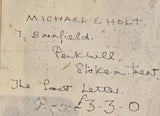 MICHAEL E HOLT.
7, Barnfield.
Penkhull,
Stoke-on-Trent.
The Last Letter.
£3-3-0